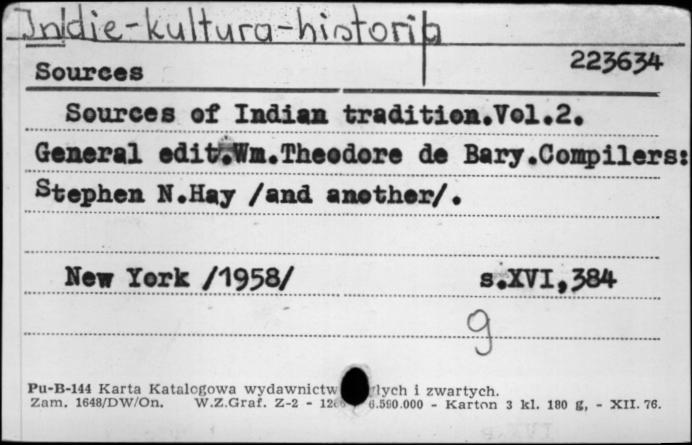 Indie-kultura-historia
223634
Sources
Sources of Indian tradition.Vol.2.
General edit.Wm.Theodore de Bary.Compilers:
Stephen N.Hay /and another/.
New York /1958/ s.XVI,384
g
Pu-B-144 Karta Katalogowa wydawnictw i zwartych.
Zam. 1648/DW/On. W.Z.Graf. Z-2 - 6.590.000 - Karton 3 kl. 180 g, - XII. 76.